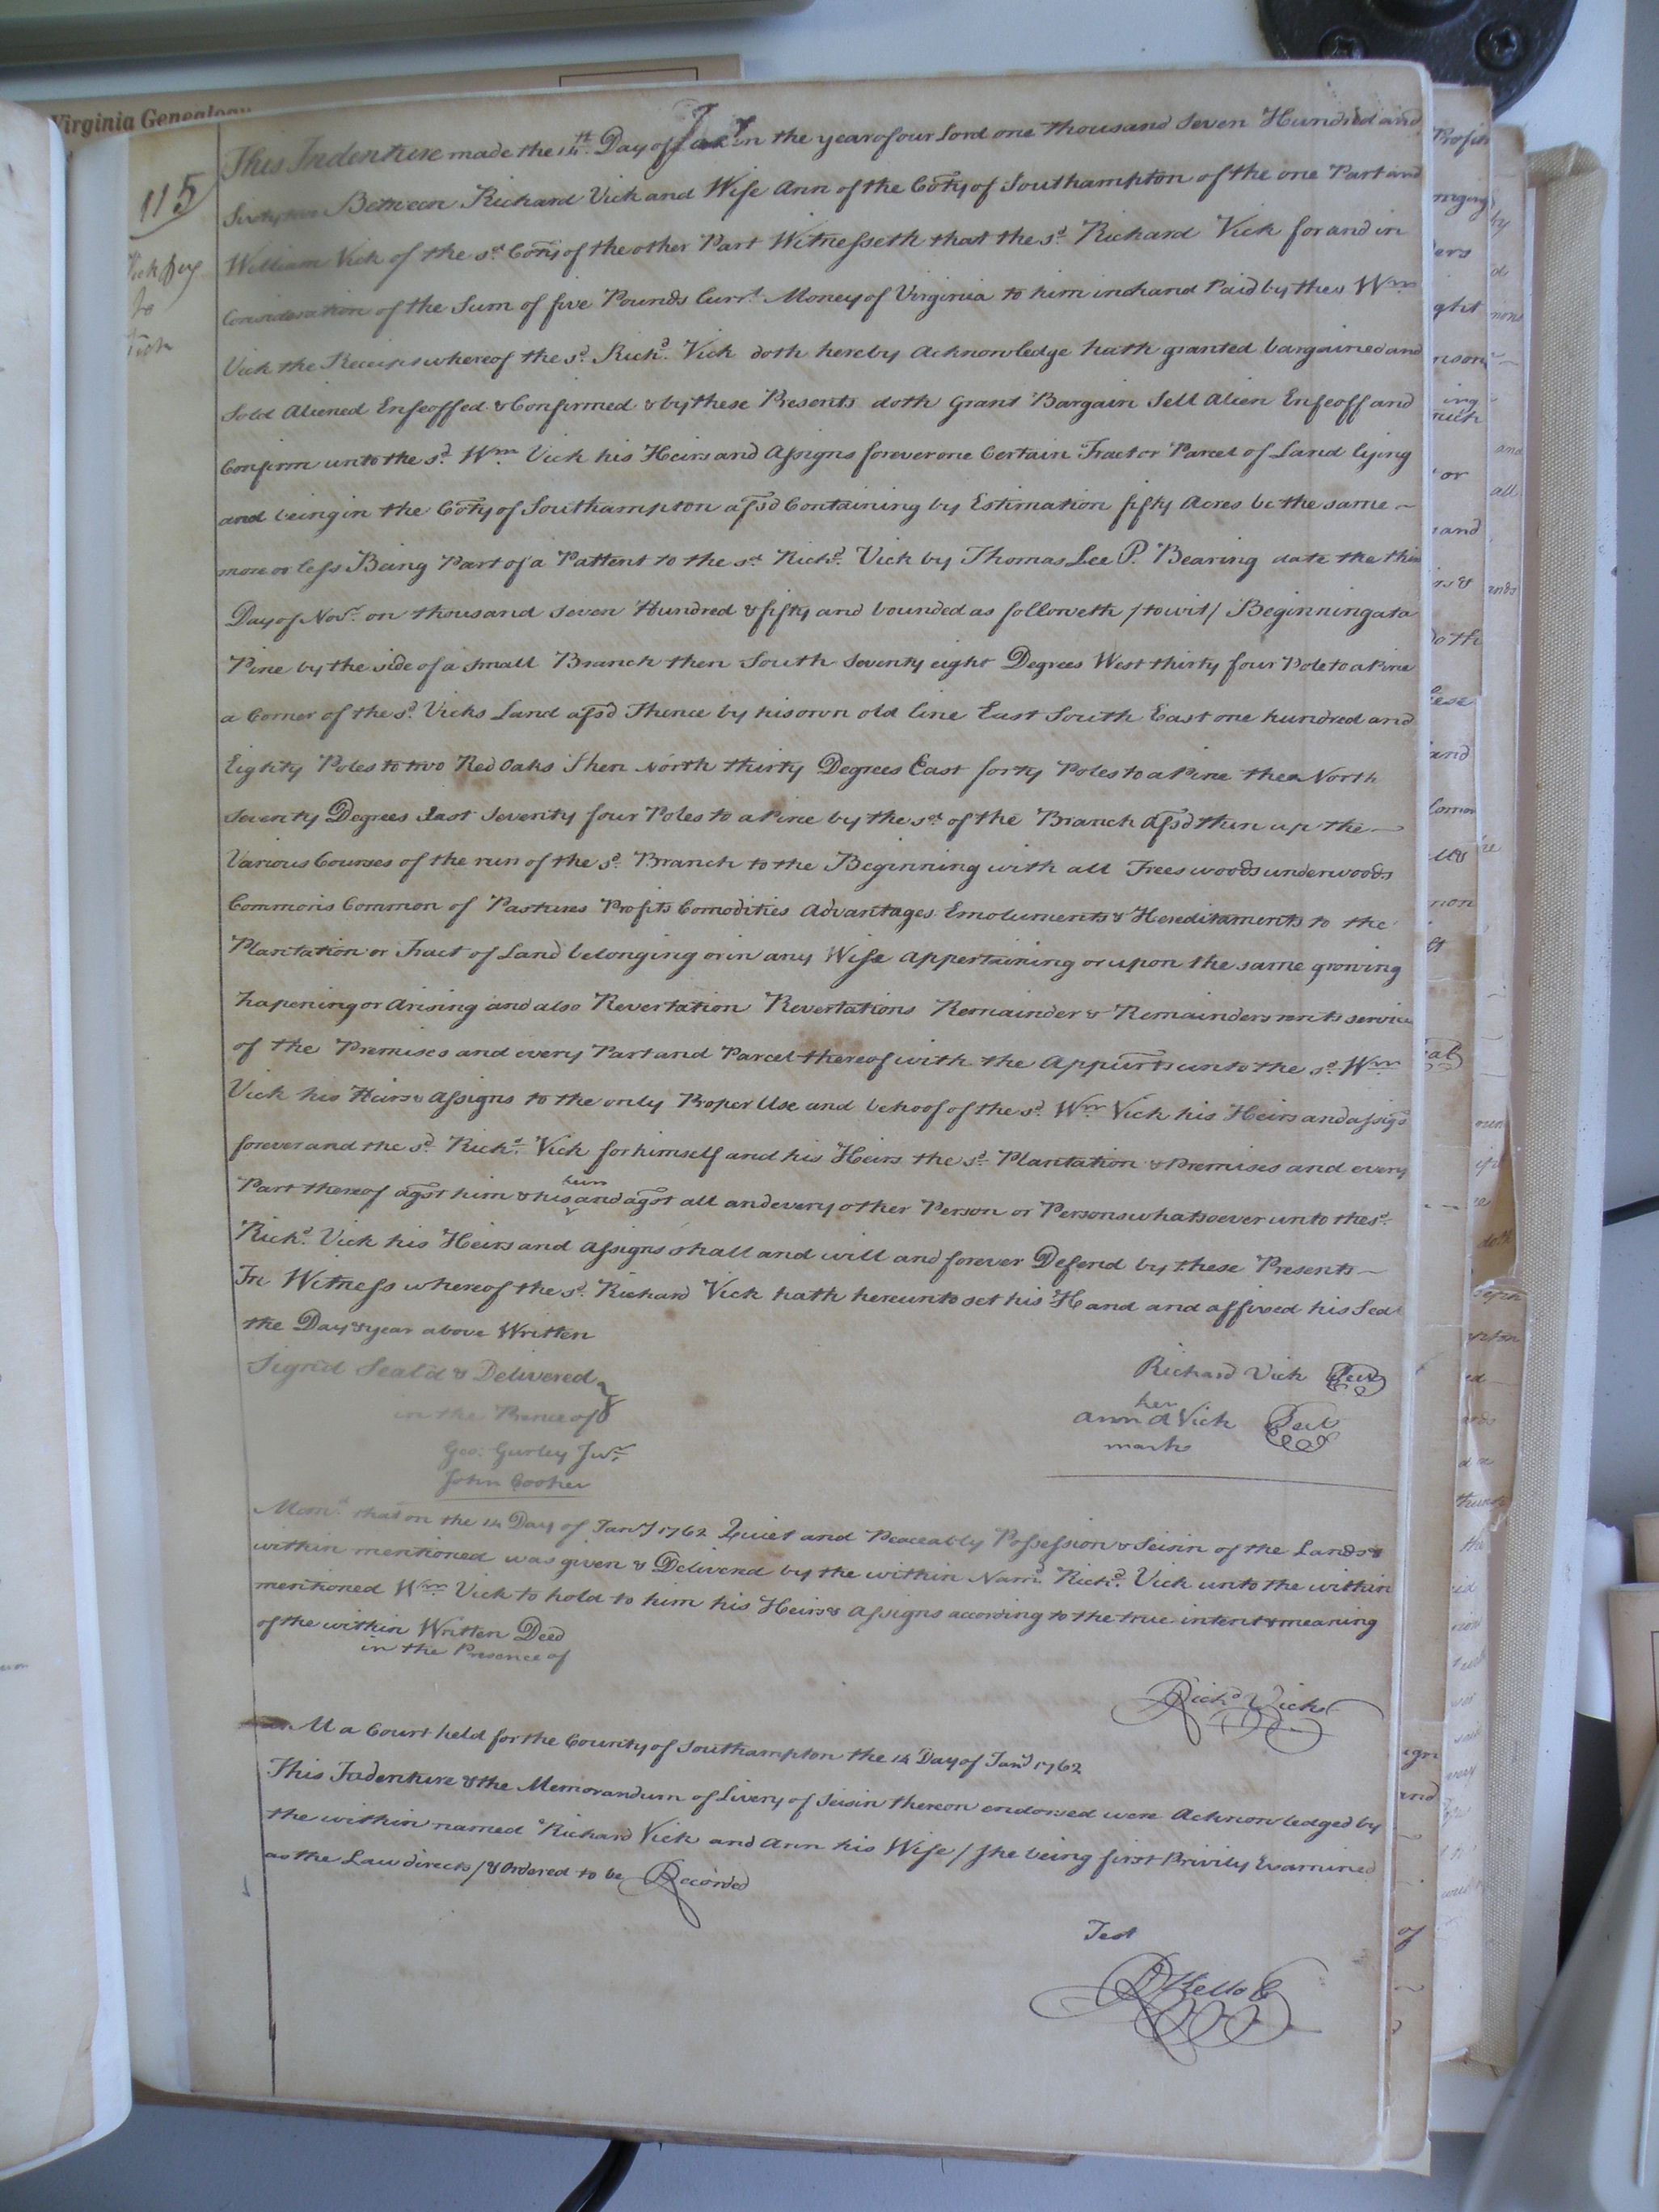 Virginia Genealogy
115
Vick
to
Vick
This Indenture made the 14th. Day of Jany in the year of our Lord one thousand Seven Hundred and
Between Richard Vick and Wife Ann of the Coty of Southampton of the one Part and
William Vick of the sd. Coty of the other Part Witnesseth that the sd. Richard Vick for and in
Consideration of the Sum of five Pounds Currt. Money of Virginia to him in hand Paid by the Wm
Vick the Receipt whereof the sd. Richd. Vick doth hereby Acknowledge hath granted bargained and
Sold Aliened Enfeoffed & Confirmed & by these Presents doth Grant Bargain Sell Alien Enfeoff and
Confirm unto the sd. Wm. Vick his Heirs and Assigns forever one Certain Tract or Parcel of Land lying
and being in the Coty of Southampton afsd Containing by Estimation fifty Acres be the same ~
more or less Being Part of a Pattent to the sd. Richd. Vick by Thomas Lee P. Bearing date the
Day of Novr. on thousand Seven Hundred & fifty and bounded as followeth /towit/ Beginning at a
Pine by the side of a small Branch then South Seventy eight Degrees West thirty four Pole to a Pine
a Corner of the sd. Vicks Land afsd Thence by his own old line East South East one hundred and
Eighty Poles to two Red Oaks Then North thirty Degrees East forty Poles to a Pine then North
Seventy Degrees East Seventy four Poles to a Pine by the sd. of the Branch afsd then up the ~
Various Courses of the run of the sd. Branch to the Beginning with all Trees woods underwoods
Commons Common of Pastures Profits Comodities Advantages Emoluments & Hereditaments to the
Plantation or Tract of Land belonging or in any Wise appertaining or upon the same growing
hapening or Arising and also Revertation Revertations Remainder & Remainders rents service
of the Premises and every Part and Parcel thereof with the Appurts unto the sd. Wm
Vick his Heirs & Assigns to the only Proper Use and behoof of the sd. Wm Vick his Heirs and assigs
forever and the sd. Richd. Vick for himself and his Heirs the sd. Plantation & Premises and every
Part thereof agst him & his heirs and agst all and every other Person or Persons whatsoever unto the sd.
Richd. Vick his Heirs and Assigns shall and will and forever Defend by these Presents ~
In Witness whereof the sd. Richard Vick hath hereunto set his Hand and affixed his Seal
the Day & year above Written
Sign'd Seal'd & Delivered
in the Prence of
Geo: Gurley Junr.
John Cooper
Richard Vick Seal
her
Ann A Vick Seal
mark
Memd. that on the 14 Day of Jany 1762 Quiet and Peaceably Possession & Seisin of the Lands &
within mentioned was given & Delivered by the within Namd. Richd. Vick unto the within
mentioned Wm Vick to hold to him his Heirs & Assigns according to the true intent & meaning
of the within Written Deed
in the Presence of
Richd Vick
At a Court held for the County of Southampton the 14 Day of Jany 1762
This Indenture & the Memorandum of Livery of Seisin thereon endorsed were Acknowledged by
the within named Richard Vick and Ann his Wife / she being first Privily Examined
as the Law directs / & Ordered to be Recorded
Test
R Kello C